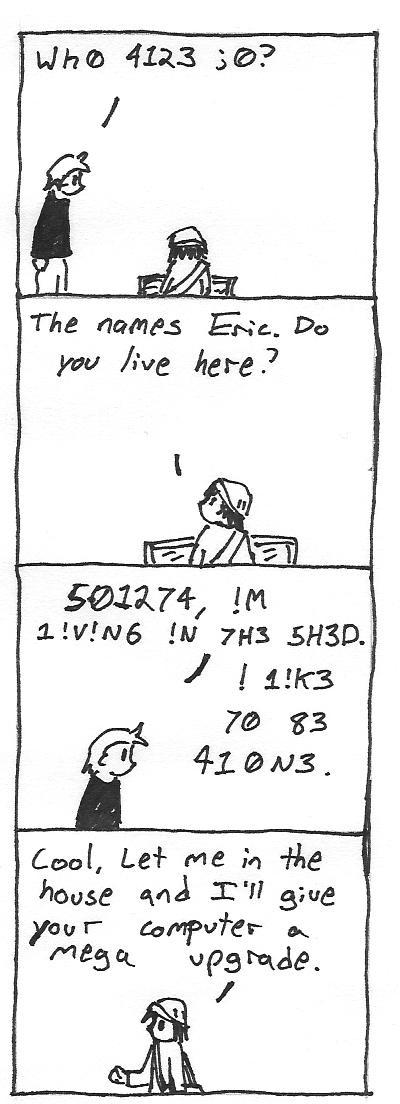 Who 4123 ;0?
The names Eric. Do
you live here?
501274, !M
1!V!N6 !N 7H3 5H3D.
! 1!K3
70 83
410N3.
Cool, Let me in the
house and I'll give
your computer a
mega upgrade.